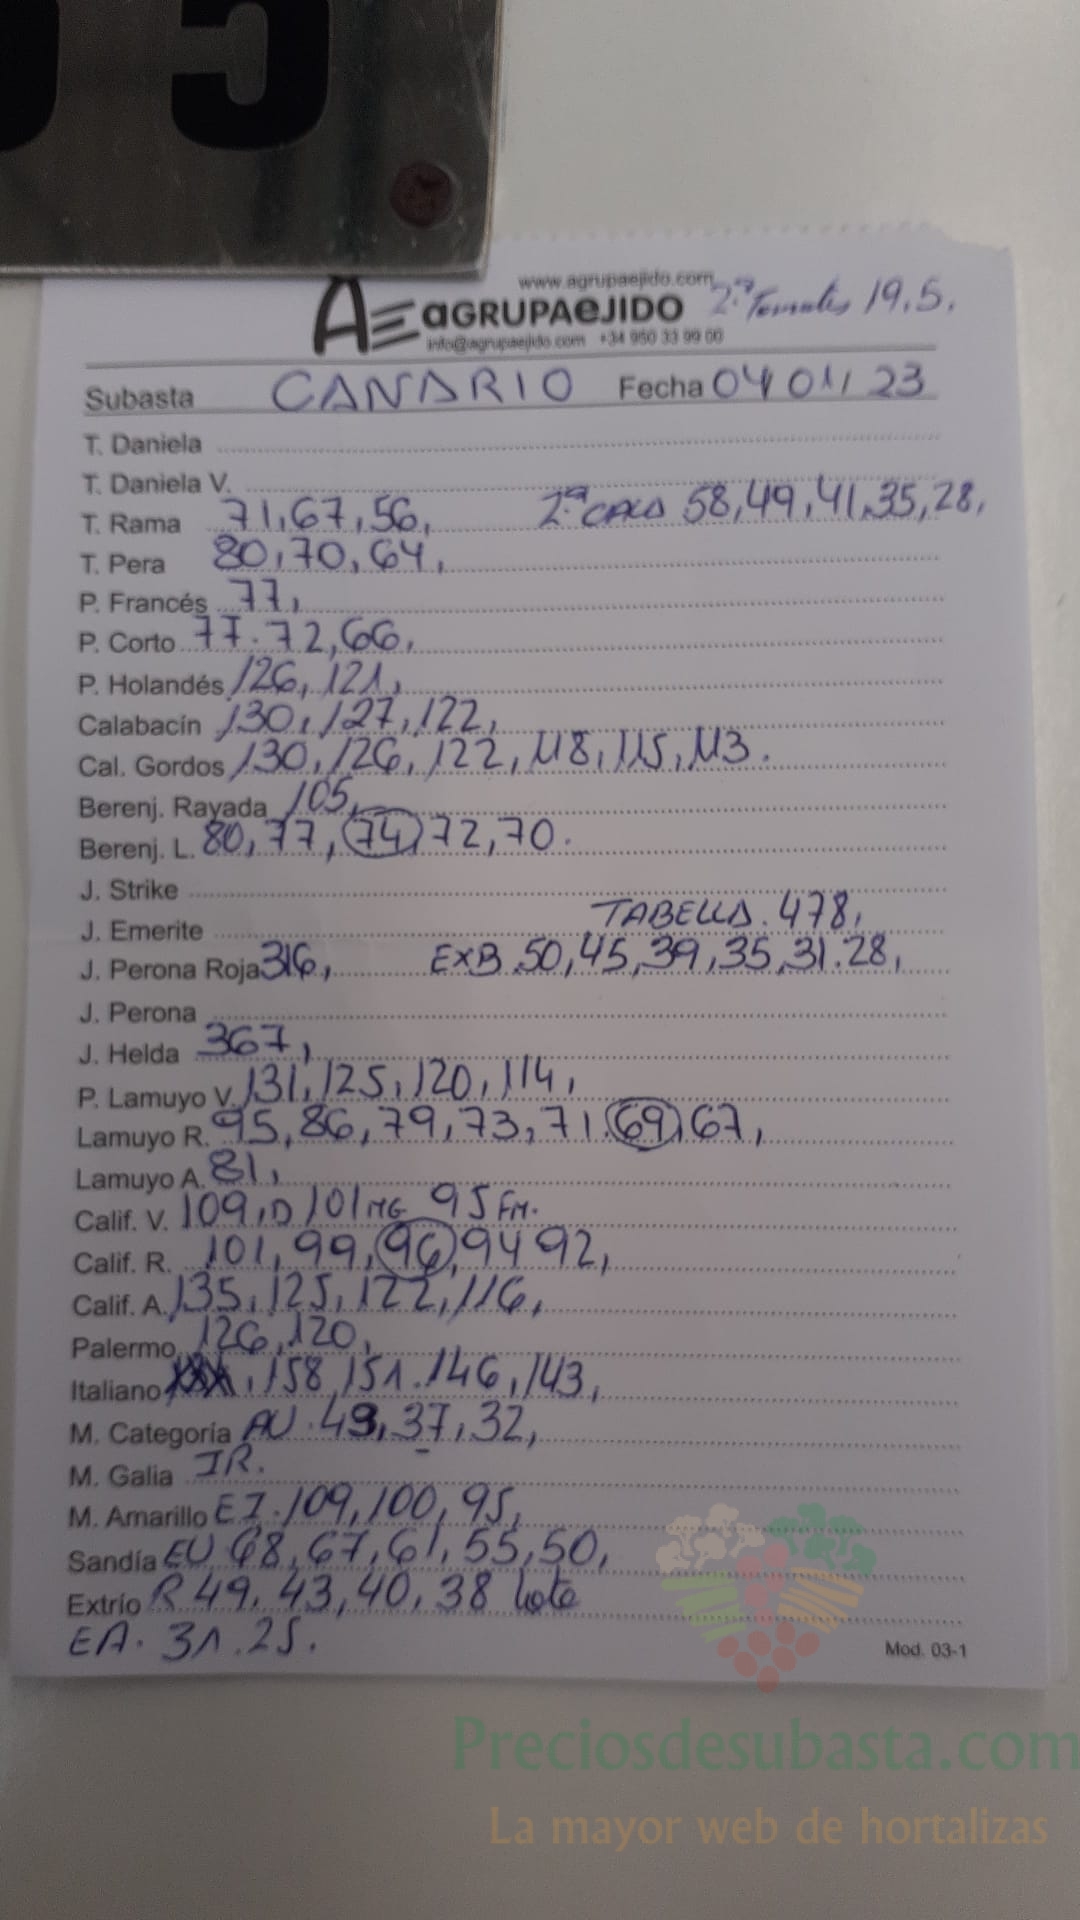 5
www.agrupaejido.com
AGRUPAEJIDO 2ª Tomates 19.5.
info@agrupaejido.com +34 950 33 99 00
Subasta CANARIO Fecha 04/01/23
T. Daniela
T. Daniela V.
T. Rama 71,67,56, 2ª CALA 58,49,41,35,28,
T. Pera 80,70,64,
P. Francés 77,
P. Corto 77.72,66,
P. Holandés 126,121,
Calabacín 130,127,122,
Cal. Gordos 130,126,122,118,115,113.
Berenj. Rayada 105,
Berenj. L. 80,77,74,72,70.
J. Strike
J. Emerite TABELLA.478,
J. Perona Roja 316, EXB.50,45,39,35,31.28,
J. Perona
J. Helda 367,
P. Lamuyo V. 131,125,120,114,
Lamuyo R. 95,86,79,73,71.69,67,
Lamuyo A. 81,
Calif. V. 109,D 101 MG 95 FM.
Calif. R. 101,99,96,94 92,
Calif. A. 135,125,122,116,
Palermo 126,120,
Italiano ,158,151.146,143,
M. Categoría AU.49,37,32,
M. Galia IR.
M. Amarillo EI.109,100,95,
Sandía EU 68,67,61,55,50,
Extrío R 49,43,40,38 lote
EA. 31.25.
Mod. 03-1
Preciosdesubasta.com
La mayor web de hortalizas